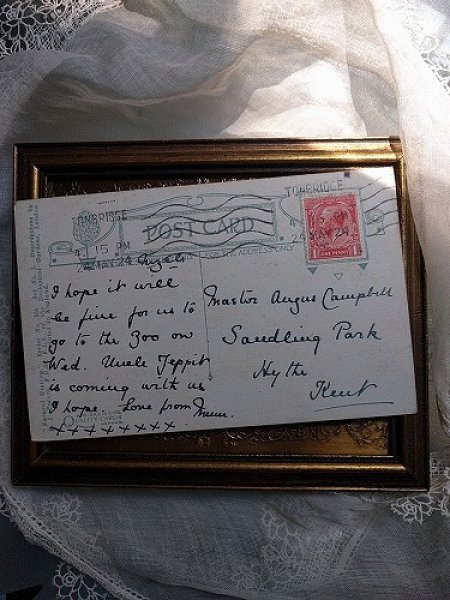 TONBRIDGE
4 15 PM
24 MAY 24
POST CARD
TONBRIDGE
15 PM
24 MAY 24
ONE PENNY
I hope it will
be fine for us to
go to the Zoo on
Wed. Uncle
is coming with us
I hope. Love from
x x x x x x x x.
Master Angus Campbell
Sandling Park
Hythe
Kent